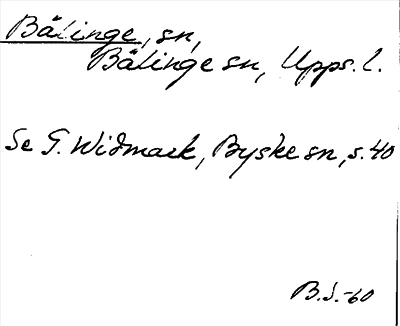 Bälinge, sn,
Bälinge sn, Upps. l.
Se G. Widmark, Byske sn, s. 40
B.S.-60